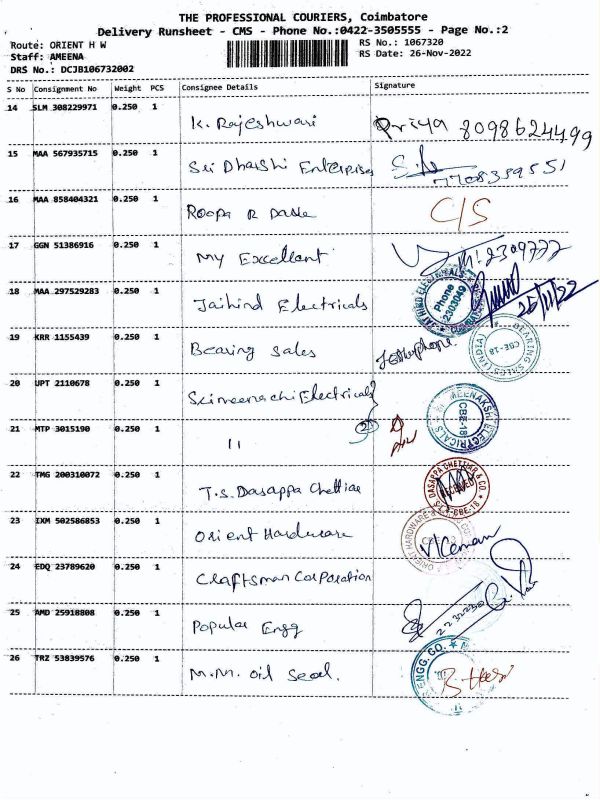 THE PROFESSIONAL COURIERS, Coimbatore
Delivery Runsheet - CMS - Phone No.:0422-3505555 - Page No.:2
Route: ORIENT H W RS No.: 1067320
Staff: AMEENA RS Date: 26-Nov-2022
DRS No.: DCJB106732002
S No Consignment No Weight PCS Consignee Details Signature
14 SLM 308229971 0.250 1
K. Rajeshwari Priya 8098624499
15 MAA 567935715 0.250 1
Sri Dharshi Enterprises 7708359551
16 MAA 858404321 0.250 1
Roopa R C/S
17 GGN 51386916 0.250 1
My Excellent 2309777
18 MAA 297529283 0.250 1
Jaihind Electricals JAI HIND ELECTRICALS Phone 2303049 25/11/22
19 KRR 1155439 0.250 1
Bearing Sales BEARING SALES (INDIA) CBE-18
20 UPT 2110678 0.250 1
Srimeenachi Electricals MEENAKSHI ELECTRICALS CBE-18
21 MTP 3015190 0.250 1
11
22 TMG 200310072 0.250 1
T.S. Dasappa Chettiar DASAPPA CHETTIAR & CO.
23 IXM 502586853 0.250 1
Orient Hardware
24 EDQ 23789620 0.250 1
Craftsman Corporation
25 AMD 25918808 0.250 1
Popular Engg
26 TRZ 53839576 0.250 1
M.M. Oil Seal. ENGG. CO.